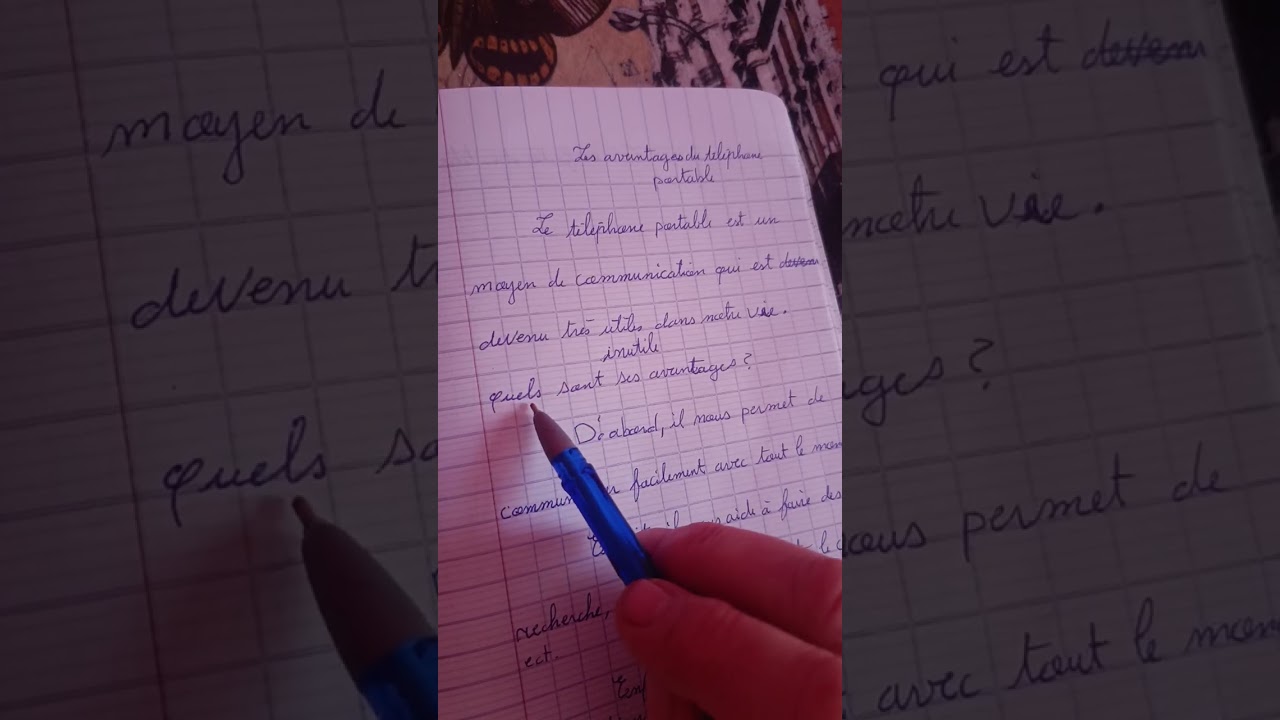 Les avantages du teliphone
portable
Le teliphone portable est un
moyen de communication qui est devenu
devenu très utiles dans notre vie.
inutile
quels sont ses avantages?
D'abord, il nous permet de
facilement avec tout le
aide à faire des
recherche,
ect.